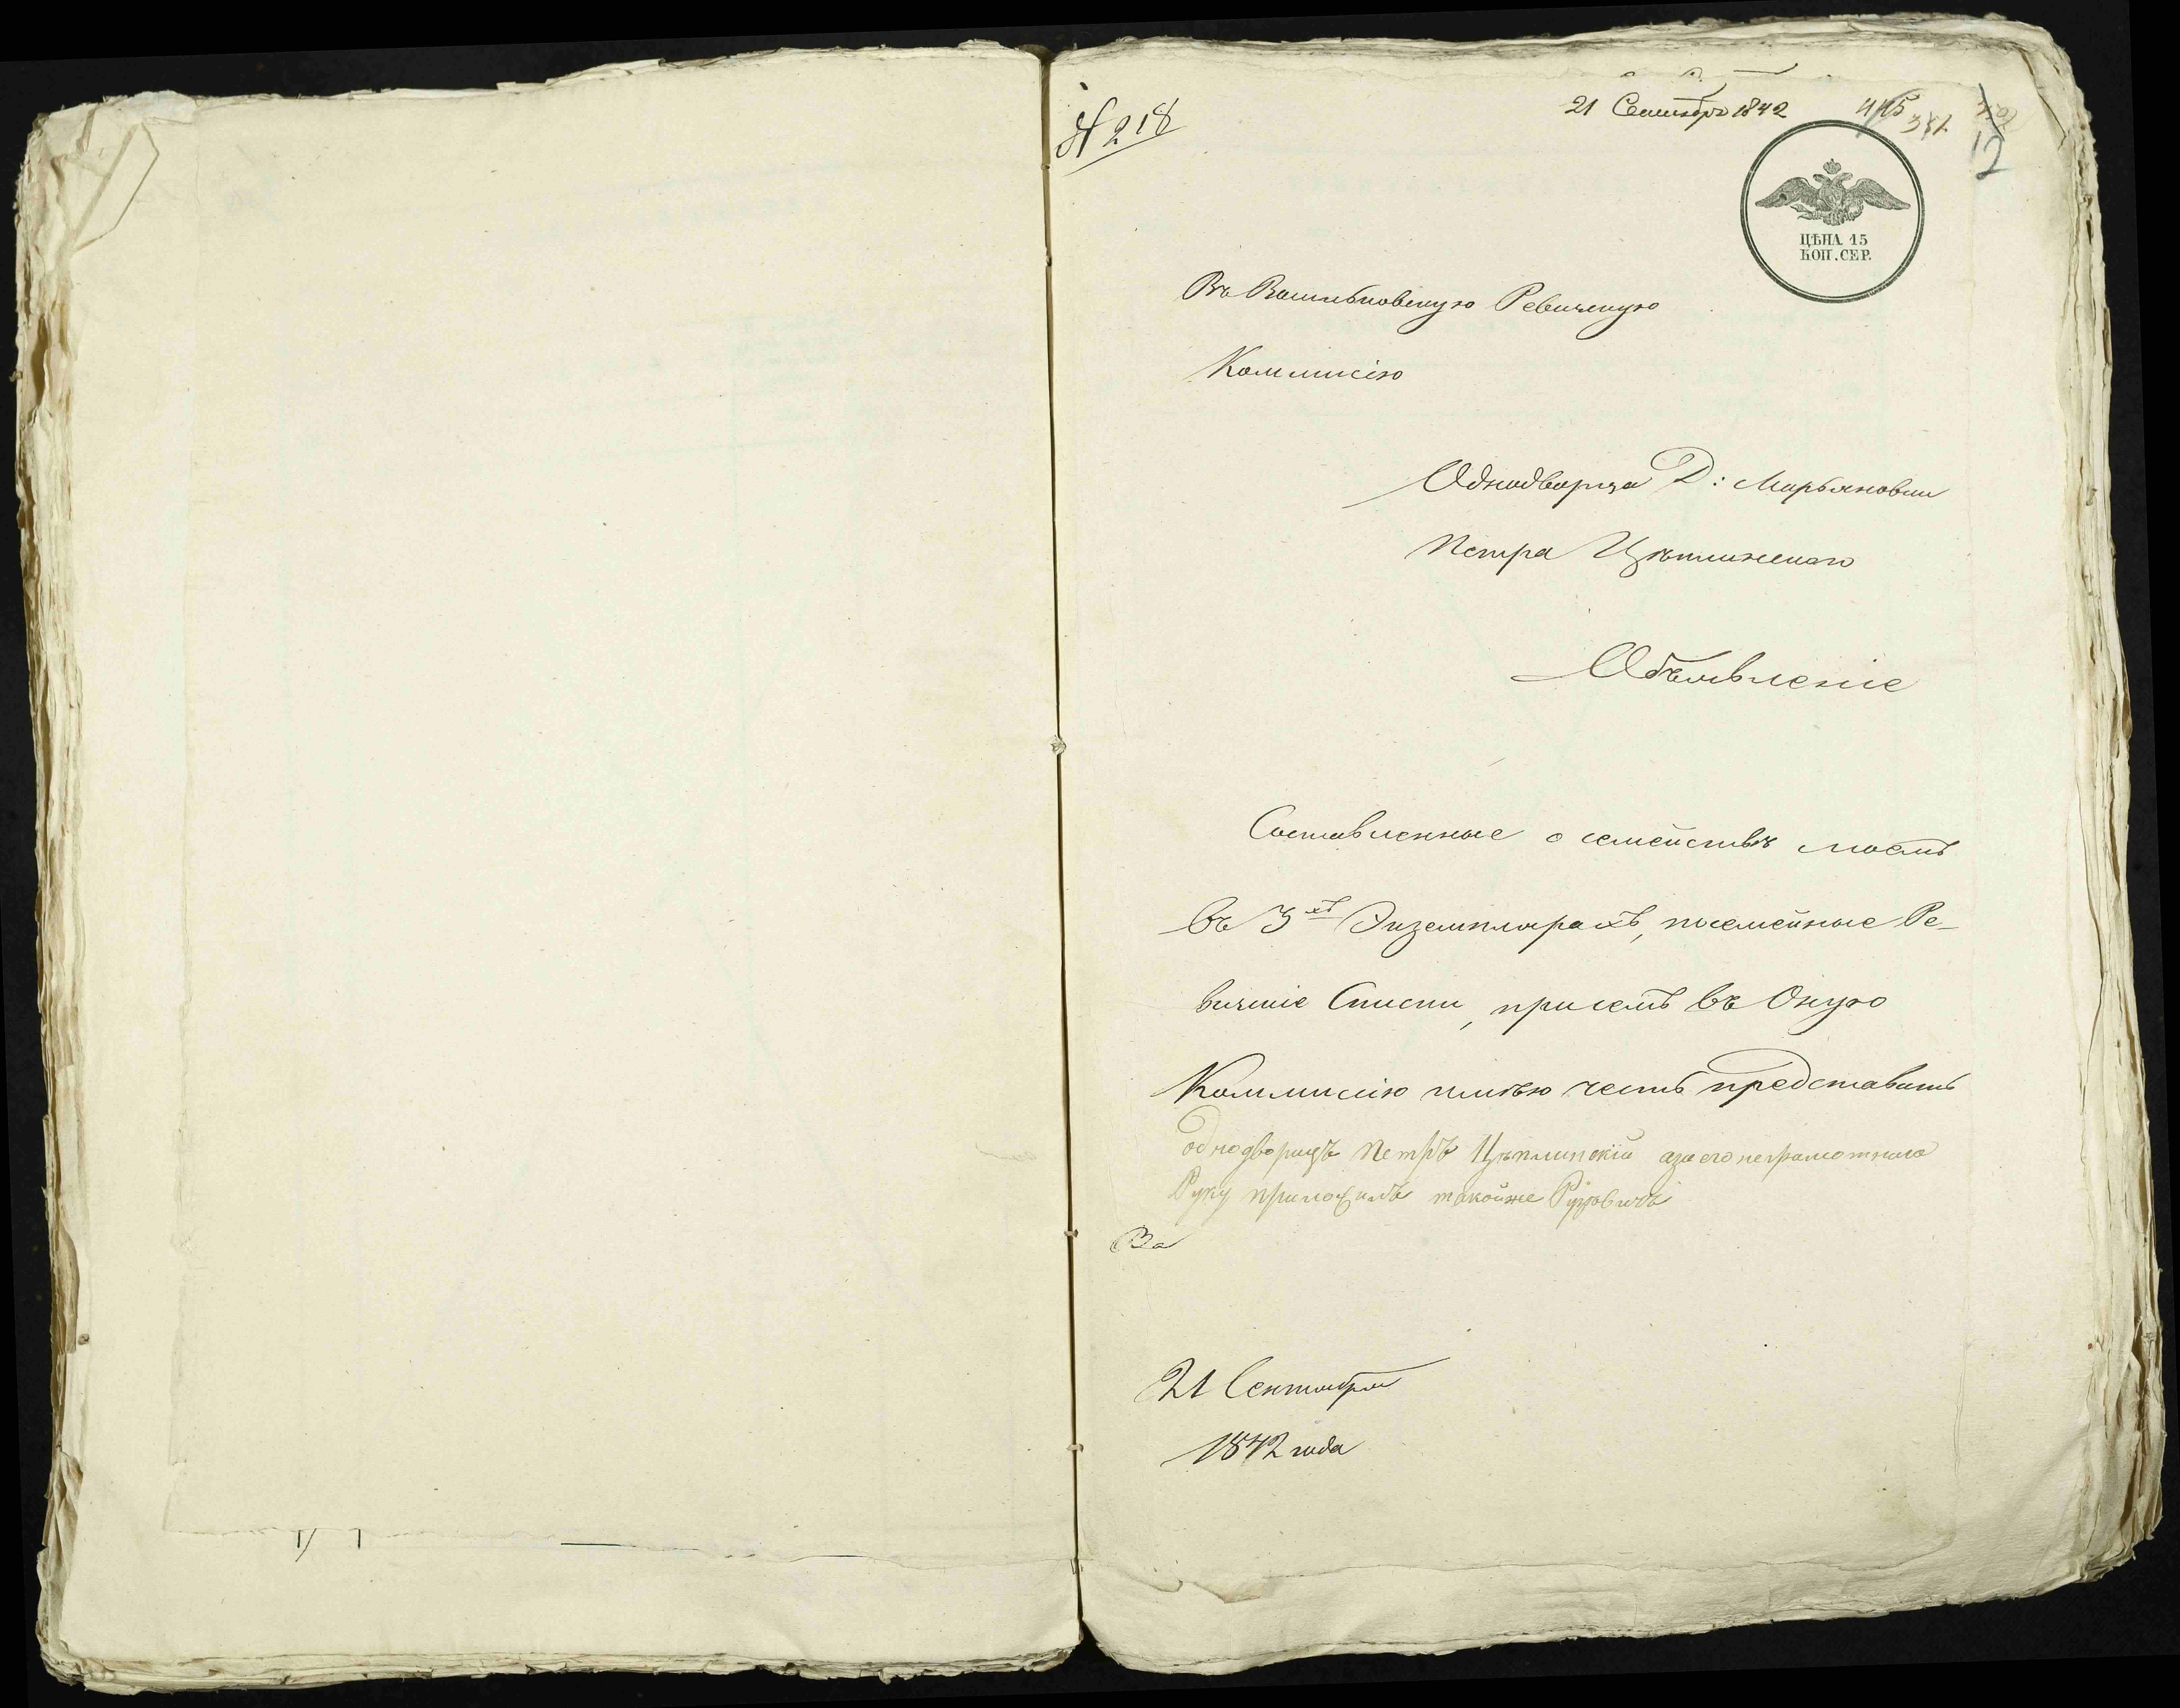 № 218
21 Сентября 1842
12
ЦѢНА 15
КОП. СЕР.
Въ Васильковскую Ревизскую
Коммисію
Однодворца Д: Марьяновки
Петра Цѣплинскаго
Объявленіе
Составленные о семействѣ моемъ
въ 3хъ Экземплярахъ, посемейные Ре-
визскіе Списки, присемъ въ Оную
Коммисію имѣю честь представить
однодворецъ Петръ Цѣплинскій азаего неграмотнаго
Руку приложилъ такойже
21 Сентября
1842 года